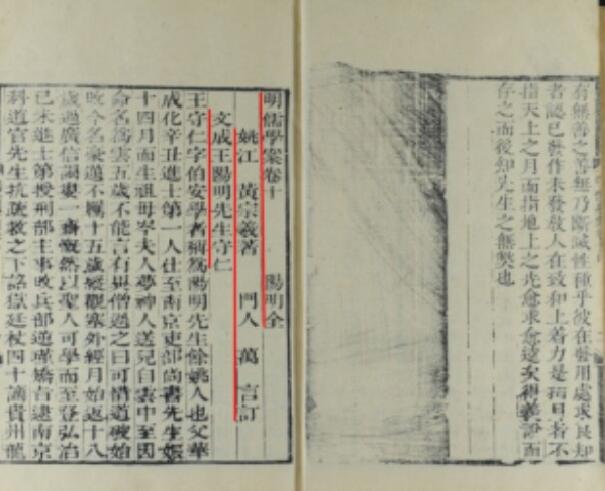 有無善之善無乃斷滅性種乎彼在發用處求良知
者認已發作未發敎人在致知上着力是指月者不
指天上之月而指地上之光愈求愈遠矣得羲說而
存之而後知先生之無弊也
明儒學案卷十 陽明全
姚江 黃宗羲著 門人 萬 言訂
文成王陽明先生守仁
王守仁字伯安學者稱爲陽明先生餘姚人也父華
成化辛丑進士第一人仕至南京吏部尚書先生娠
十四月而生祖母岑夫人夢神人送兒自雲中至因
命名爲雲五歲不能言有異僧過之曰可惜道破始
改今名豪邁不羈十五歲縱觀塞外經月始返十八
歲過廣信謁婁一齋慨然以聖人可學而至登弘治
己未進士第授刑部主事改兵部逆瑾矯旨逮南京
科道官先生抗疏救之下詔獄廷杖四十謫貴州龍